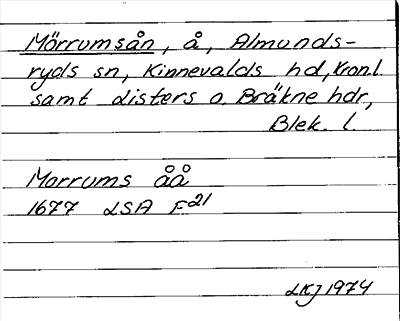 Mörrumsån, å, Almunds-
ryds sn, Kinnevalds hd, Kron.l.
samt Listers o. Bräkne hdr,
Blek. l.
Morrums åå
1677 LSA F21
LKJ 1974